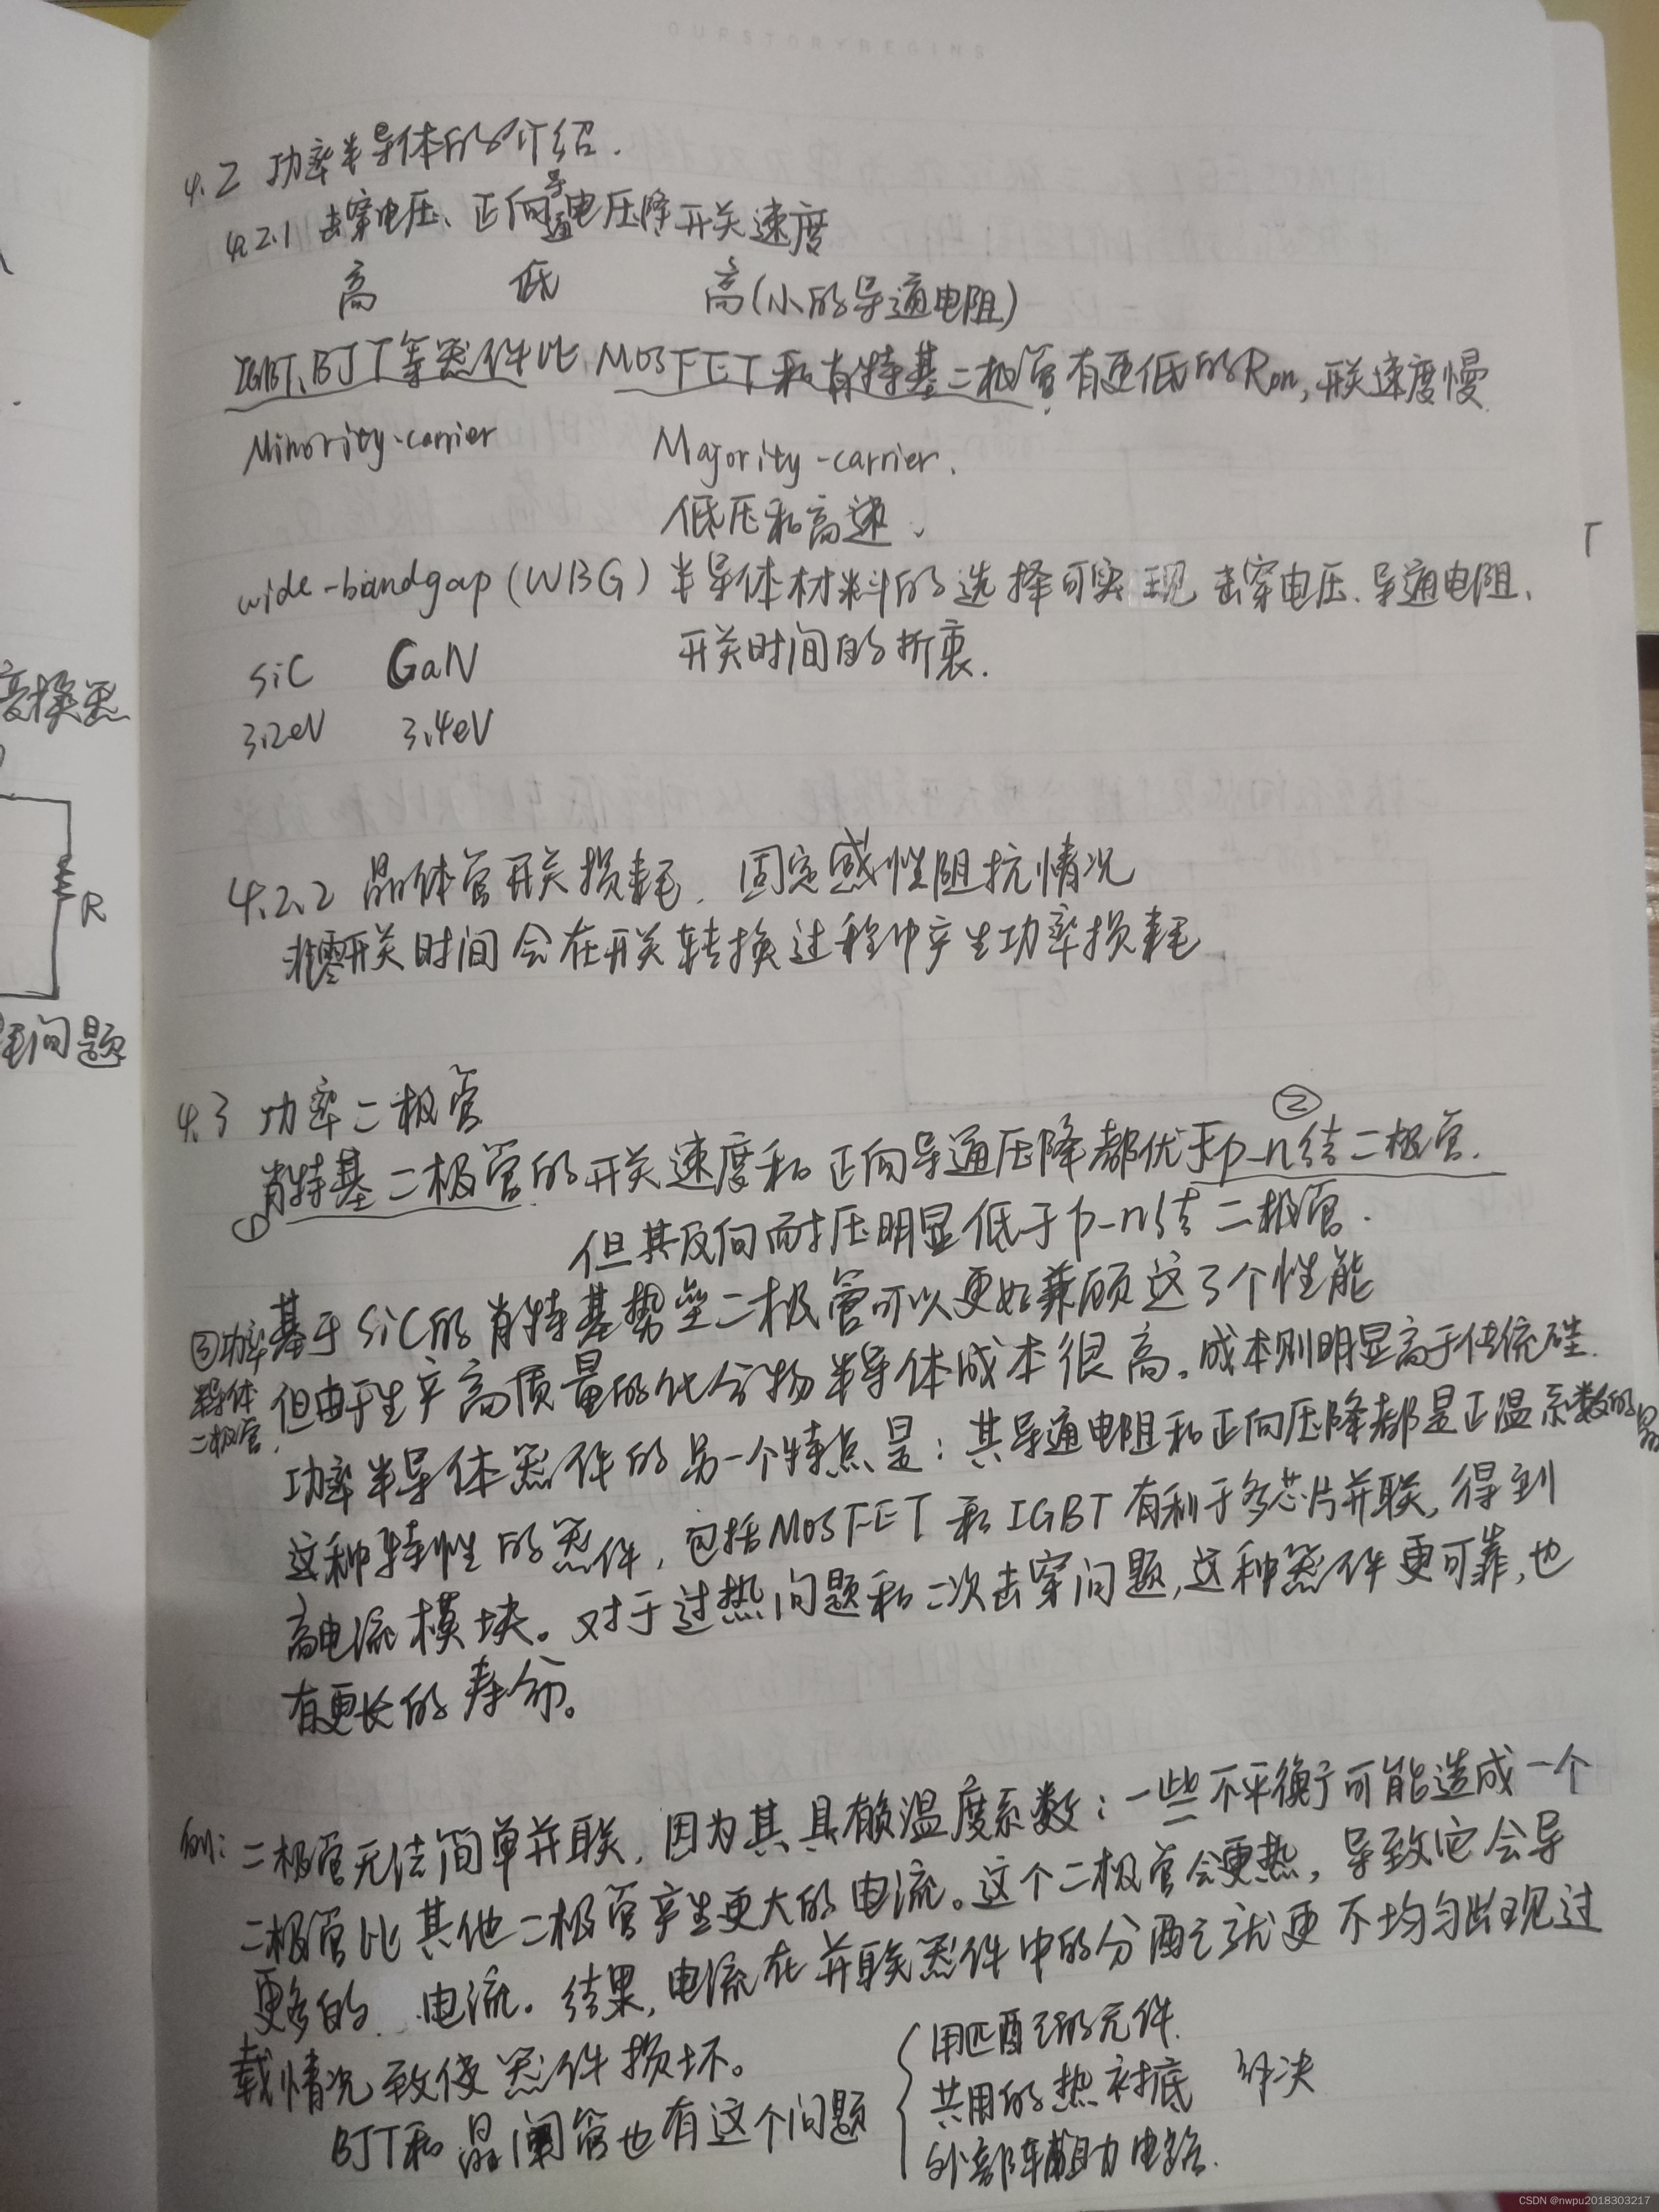 OURSTORYBEGINS
4.2 功率半导体的介绍.
4.2.1 击穿电压、正向导通电压降 开关速度
高 低 高(小的导通电阻)
IGBT、BJT等器件比 MOSFET和肖特基二极管有更低的Ron, 开关速度慢
Minority-carrier Majority-carrier.
低压和高速、
wide-bandgap (WBG) 半导体材料的选择可实现 击穿电压、导通电阻、
开关时间的折衷.
SiC GaN
3.2eV 3.4eV
变换器
R
问题
4.2.2 晶体管开关损耗. 固定感性阻抗情况
非零开关时间会在开关转换过程中产生功率损耗
4.3 功率二极管
② 
肖特基二极管的开关速度和正向导通压降都优于p-n结二极管.
①
但其反向耐压明显低于p-n结二极管.
③功率半导体二极管.
基于SiC的肖特基势垒二极管可以更好兼顾这3个性能
但由于生产高质量的化合物半导体成本很高。成本则明显高于传统硅.
功率半导体器件的另一个特点是：其导通电阻和正向压降都是正温系数的
这种特性的器件, 包括MOSFET和IGBT有利于多芯片并联, 得到
高电流模块。对于过热问题和二次击穿问题, 这种器件更可靠, 也
有更长的寿命。
例: 二极管无法简单并联, 因为其具有负温度系数: 一些不平衡可能造成一个
二极管比其他二极管产生更大的电流。这个二极管会更热, 导致它会导
更多的 电流。结果, 电流在并联器件中的分配就更不均匀出现过
载情况致使器件损坏。
BJT和晶闸管也有这个问题
用匹配的元件.
共用的热衬底 解决
外部辅助电路.
CSDN @nwpu2018303217